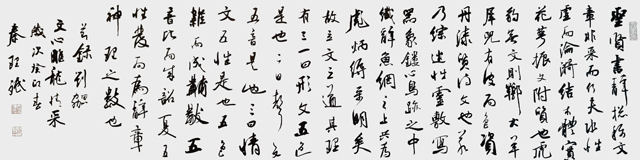 聖賢書辭總稱文
章非采而何夫水性
虛而淪漪結木體實而
花萼振文附質也虎
豹無文則鞟同犬羊
犀兕有皮而色資
丹漆質待文也若
乃綜述性靈敷寫
器象鏤心鳥跡之中
織辭魚網之上其為
彪炳縟采明矣
故立文之道其理
有三一曰形文五色
是也二曰聲文
五音是也三曰情
文五性是也五色
雜而成黼黻五
音比而成韶夏五
性發而為辭章
神理之數也
錄劉勰
文心雕龍情采
歲次春
秦